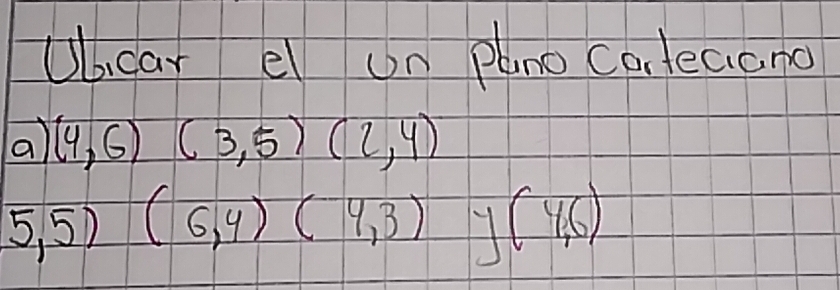 Ubicar el un plano Carteciano
a) (4,6) ( 3,5) (2,4)
5,5) ( 6,4) ( 4,3) y ( 4,6)